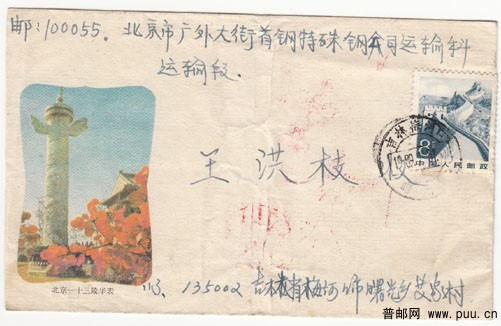 邮:100055. 北京市广外大街首钢特殊钢公司运输科
运输段.
8
中国人民邮政
吉林
王洪枝
北京—十三陵华表
135002 吉林省梅河口市曙光乡艾家村
普邮网 www.puu.cn